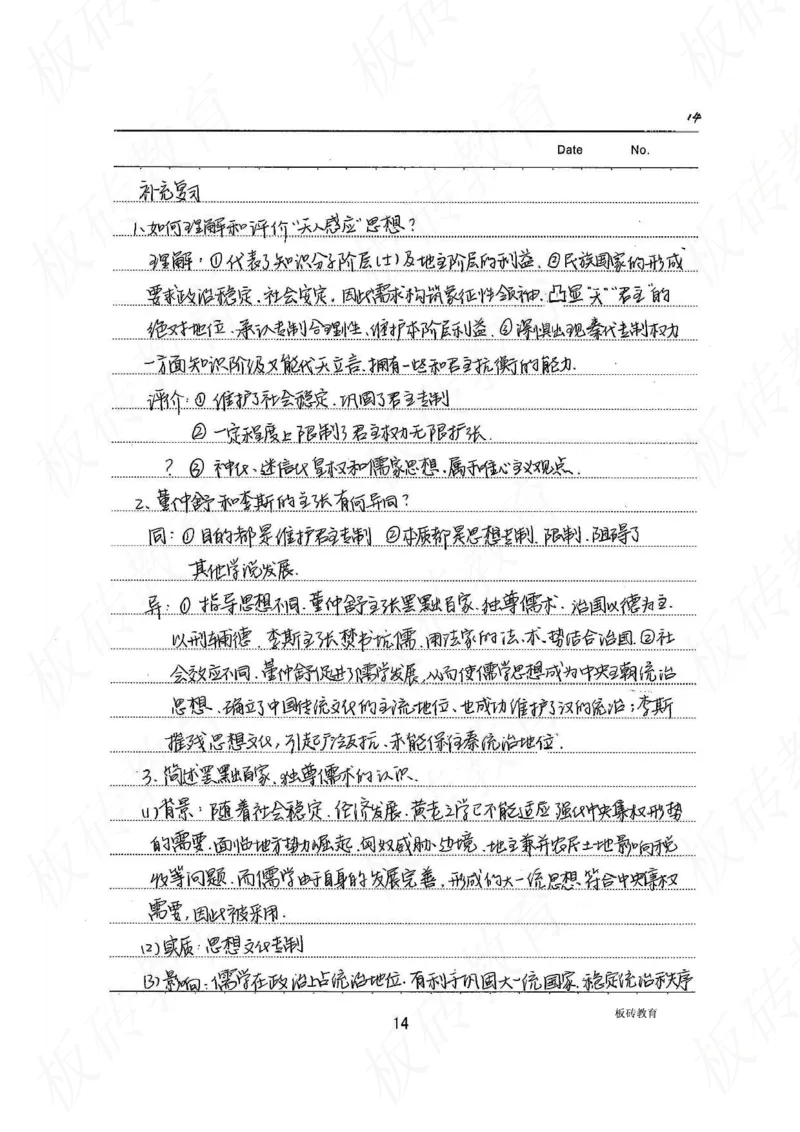 14
Date No.
补充复习
1、如何理解和评价"天人感应"思想？
理解：①代表了知识分子阶层(士)及地主阶层的利益、②民族国家的形成
要求政治稳定、社会安定，因此需求构筑象征性领神、凸显"天""君主"的
绝对地位、承认专制合理性、维护本阶层利益、④深惧出现秦代专制权力
一方面知识阶级又能代天立言、拥有一些和君主抗衡的能力.
评价：①维护了社会稳定、巩固了君主专制
②一定程度上限制了君主权力无限扩张.
？③神化、迷信化皇权和儒家思想、属于唯心主义观点.
2、董仲舒和李斯的主张有何异同？
同：①目的都是维护君主专制 ②本质都是思想专制、限制、阻碍了
其他学说发展.
异：①指导思想不同、董仲舒主张罢黜百家、独尊儒术、治国以德为主、
以刑辅德、李斯主张焚书坑儒、用法家的法、术、势结合治国.②社
会效应不同、董仲舒促进了儒学发展,从而使儒学思想成为中央王朝统治
思想、确立了中国传统文化的主流地位、也成功维护了汉的统治；李斯
摧残思想文化,引起广泛反抗、未能保住秦统治地位.
3、简述罢黜百家、独尊儒术的认识.
(1)背景：随着社会稳定、经济发展、黄老之学已不能适应强化中央集权形势
的需要、面临地方势力崛起、匈奴威胁边境、地主兼并农民土地影响税
收等问题、而儒学由于自身的发展完善、形成的大一统思想符合中央集权
需要,因此被采用.
(2)实质：思想文化专制
(3)影响：儒学在政治上占统治地位、有利于巩固大一统国家、稳定统治秩序
14
板砖教育